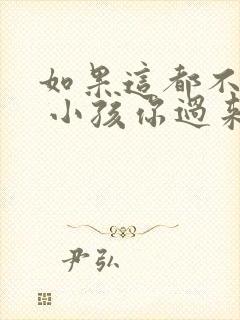 如果這都不
小孩你過來
尹弘